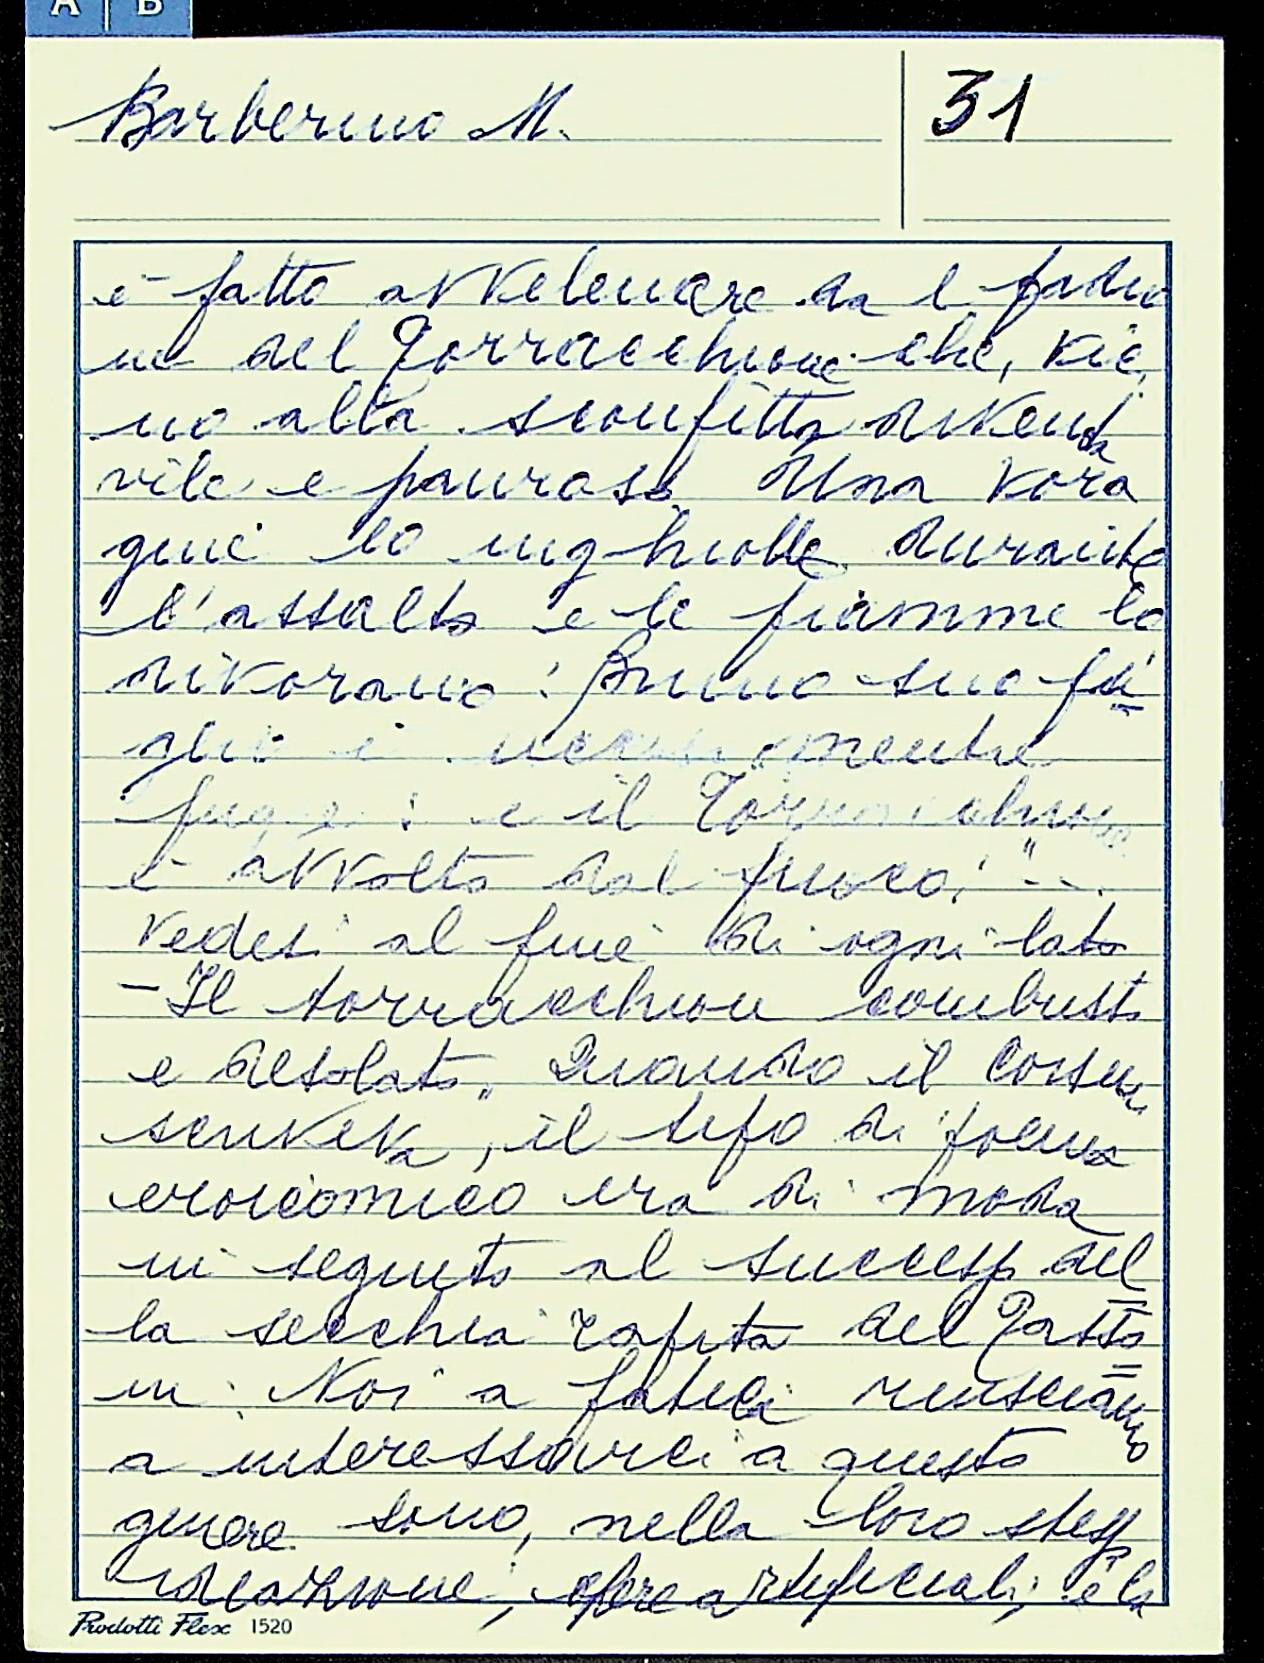 A B
Barberino M.
31
è fatto avvelenare da l padro
ne del Torracchione che, vic
no alla sconfitta diventa
vile e pauroso. Una vora
gine lo inghiotte durante
l'assalto e le fiamme lo
divorano: Bruno suo fi
glio è ucciso mentre
fugge: e il Torracchione
è avvolto dal fuoco! "--.
Vedesi al fine di ogni lato
- Il torracchion combusto
e desolato". Quando il Corsini
scriveva, il tipo di poema
eroicomico era di moda
in seguito al successo del
la secchia rapita del Tasso
ni. Noi a fatica riusciamo
a interessarci a questo
genere sono, nella loro stess
ideazione, opere artificiali; è la
Prodotti Flex 1520